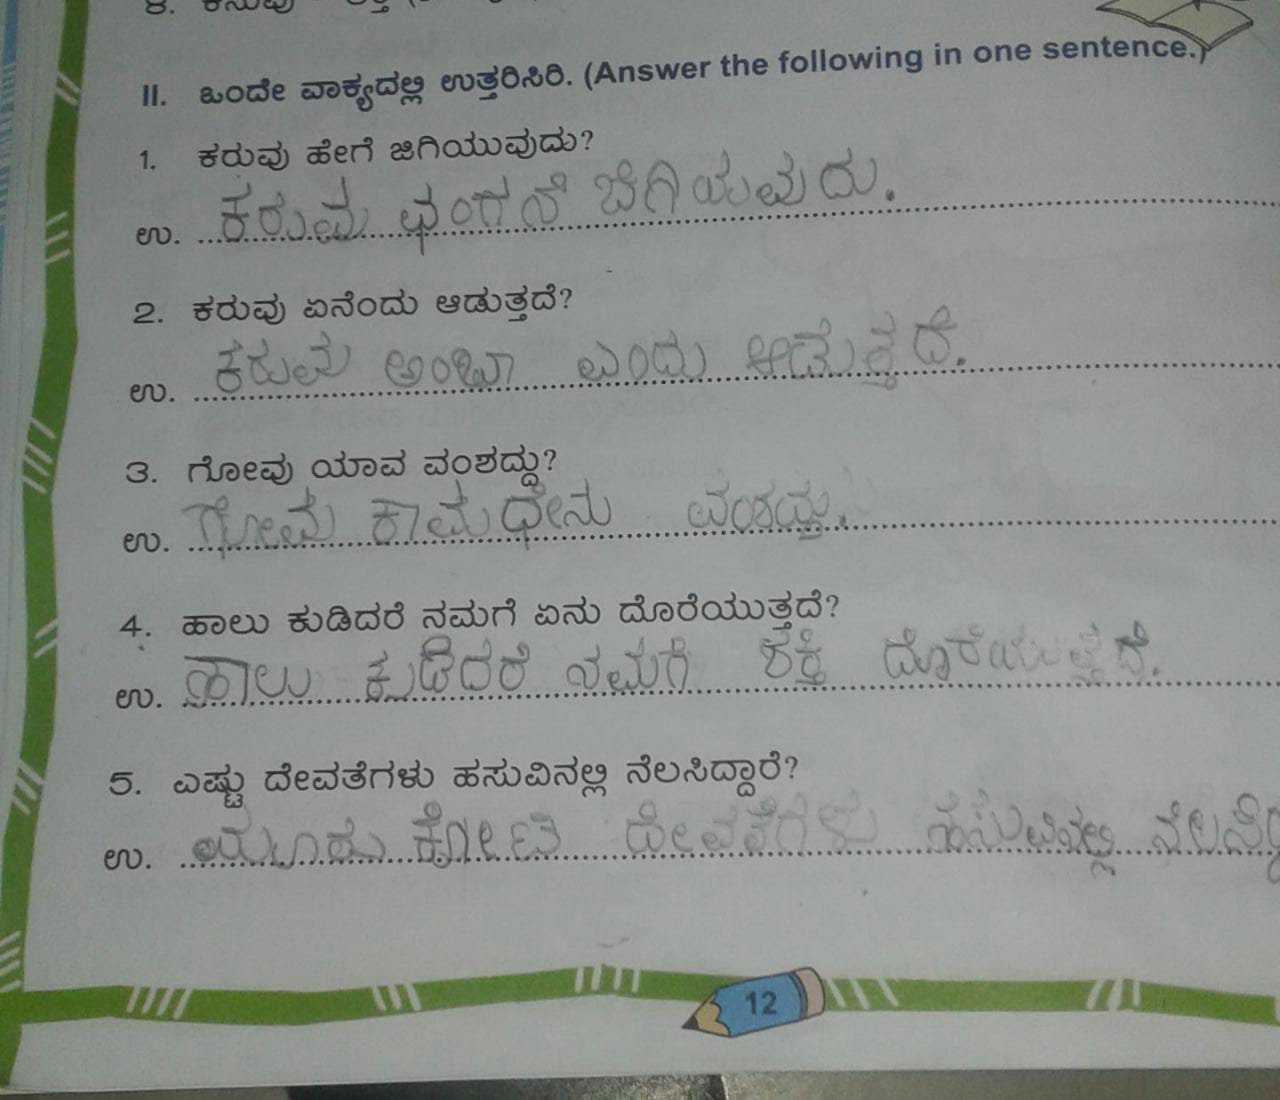 II. ಒಂದೇ ವಾಕ್ಯದಲ್ಲಿ ಉತ್ತರಿಸಿರಿ. (Answer the following in one sentence.)
1. ಕರುವು ಹೇಗೆ ಜಿಗಿಯುವುದು?
ಉ. ಕರುವು ಛಂಗನೆ ಜಿಗಿಯುವುದು.
2. ಕರುವು ಏನೆಂದು ಆಡುತ್ತದೆ?
ಉ. ಕರುವು ಅಂಬಾ ಎಂದು ಆಡುತ್ತದೆ.
3. ಗೋವು ಯಾವ ವಂಶದ್ದು?
ಉ. ಗೋವು ಕಾಮಧೇನು ವಂಶದ್ದು.
4. ಹಾಲು ಕುಡಿದರೆ ನಮಗೆ ಏನು ದೊರೆಯುತ್ತದೆ?
ಉ. ಹಾಲು ಕುಡಿದರೆ ನಮಗೆ ಶಕ್ತಿ ದೊರೆಯುತ್ತದೆ.
5. ಎಷ್ಟು ದೇವತೆಗಳು ಹಸುವಿನಲ್ಲಿ ನೆಲಸಿದ್ದಾರೆ?
ಉ. ಮೂರು ಕೋಟಿ ದೇವತೆಗಳು ಹಸುವಿನಲ್ಲಿ
12